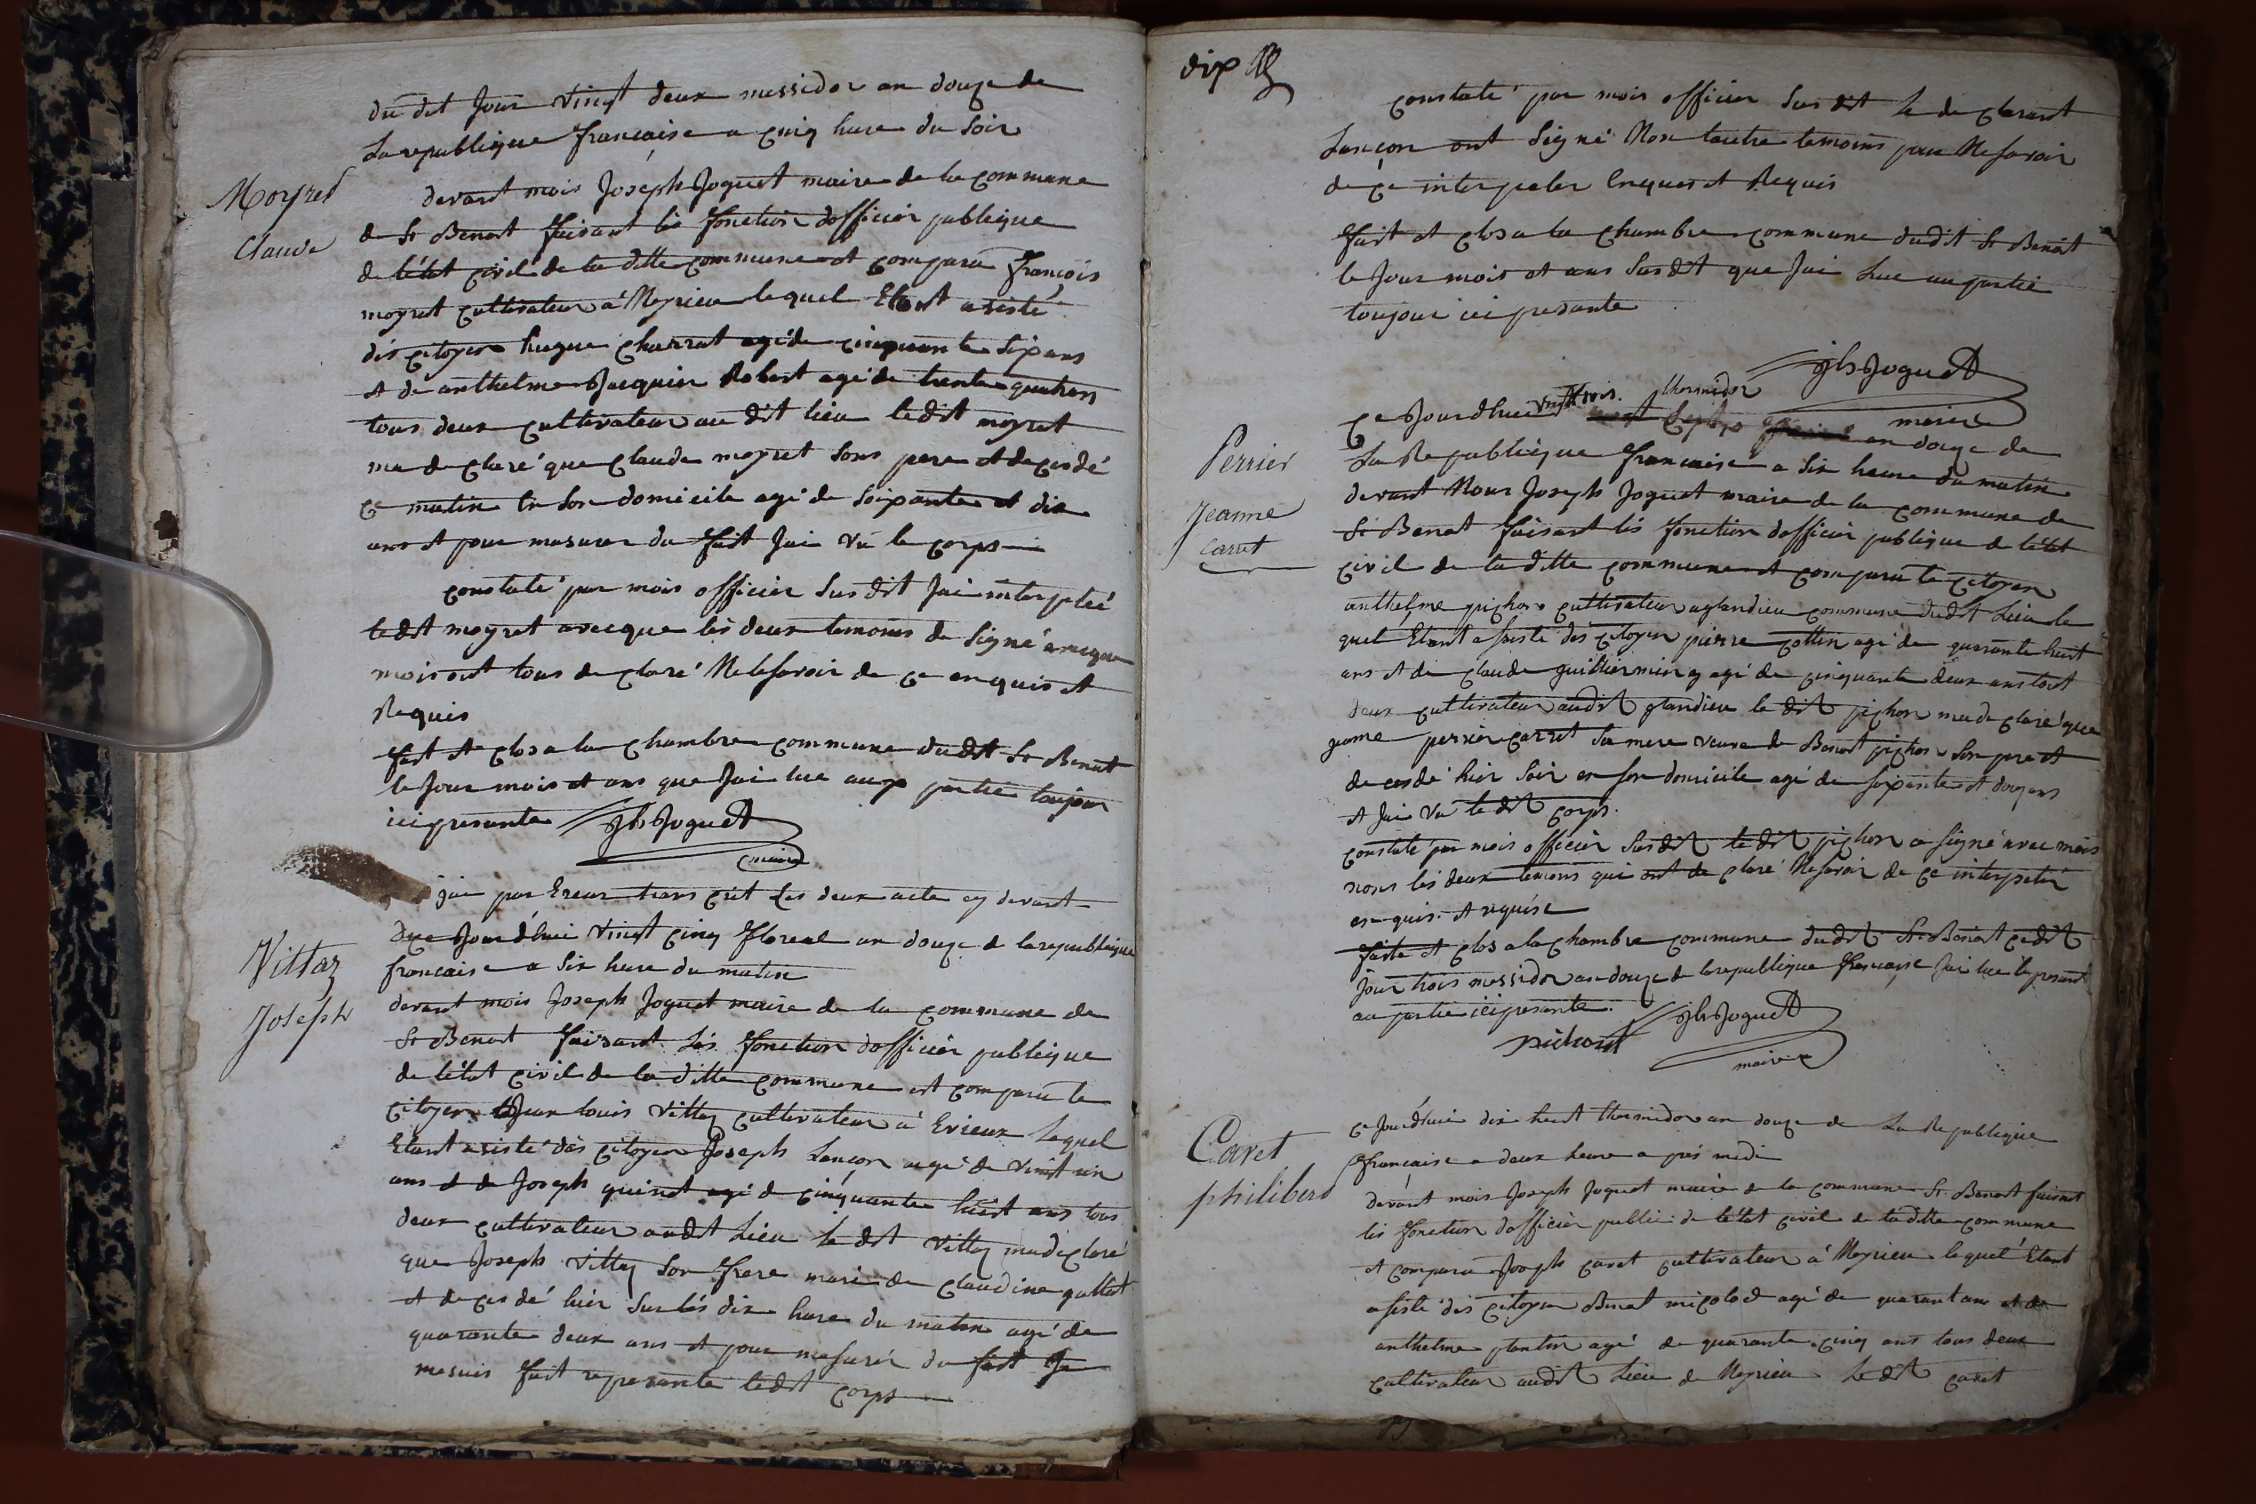 du dit Jour vingt deux messidor an douze de
La republique française a cinq hure du Soir
Moyret
Claude
devant mois Joseph Joguet maire de la commune
de St Benoit faisant lés fonction dofficier publique
de létat civil de la ditte commune et comparu françois
moyret cultivateur a Meyrieu lequel Etant asisté
dés citoyen hugue charrat agé de cinquante six ans
et de anthelme Jacquin Robert agé de trente quatre ans
tous deux cultivateur au dit lieu ledit moyret
ma de claré que Claude moyret Sons pere et decedé
ce matin en Son domicile agé de Soixante et dix
ans et pour masurer du fait Jai vu le corps
constaté par mois officier Sus dit Jai interpelé
ledit moyret avecque lés deux temoins de Signé avecque
mois ont tous de claré Ne le savoir de ce enquis et
Requis
fait et clos a la chambre commune dudit St Benoit
le Jour mois et ans que Jai lue aux partie toujour
ici presante Jh Joguet
maire
jai par Ereur trans crit Les deux acte cy devant
Vittaz
Joseph
Ce Jourdhui vingt cinq floreal an douze de la republique
francaise a Six hure du matin
devant mois Joseph Joguet maire de la commune de
St Benoit faisant Lés fonction dofficier publique
de létat civil de la ditte commune est comparu le
citoyen Jean Louis vittaz cultivateur a Evieux Lequel
Etant asisté dés citoyen Joseph Lançon agé de vint un
ans et de Joseph quinat agé de cinquante huit ans tous
deux cultivateur audit Lieu Le dit vittaz ma declaré
que Joseph vittaz Son frere mari de claudine gallet
et de cedé hier Sur lés dix hure du matin agé de
quarante deux ans et pour masurér du fait Je
mesuis fait represante ledit corps
dix
constaté par mois officier Sus dit Le de clarant
Lançon ont Signé Non lautre temoins pour Ne savoir
de ce interpeler Enquis et Requis
fait et clos a la chambre commune dudit St Benoit
le Jour mois et ans Susdit que Jai Lue au partie
toujour ici presante
Jh Joguet
maire
Perrier
Jeanne
Carret
Ce Jourdhui vingt trois thermidor an douze de
La Republique francaise a Six heure du matin
devant Nous Joseph Joguet maire de la commune de
St Benoit faisant lés fonction dofficier publique de létat
civil de la ditte commune et comparu le citoyen
anthelme pichon cultivateur a glandieu commune dudit Lieu le
quel Etant asisté dés citoyen pierre collin agé de quarante huit
ans et de claude guillermin agé de cinquante deux ans tout
deux cultivateur audit glandieu le dit pichon ma de claré que
jeanne perrier carret Sa mere veuve de Benoit pichon Son pere et
de cedé hier Soir en Son domicile agé de soixante et douze ans
et Jai vu le dit corps.
constaté par mois officier Sus dit le dit pichon a signé avec mois
nons lés deux temoins qui ont de claré Ne savoir de ce interpelér
en quis et requise
faite et clos a la chambre commune dudit St Benoit cedit
jour trois messidor an douze de la republique française Jai lue le present
au partie ici presante.
pichont Jh Joguet
maire
Caret
philibert
Ce Jourdhui dix huit thermidor an douze de La Republique
francaise a deux heure a prés midi
devant mois Joseph Joguet maire de la commune St Benoit faisant
lés fonction dofficiér public de létat civil de la ditte commune
et comparu Joseph caret cultivateur a Meyrieu lequel Etant
asisté dés citoyen Benoit micolod agé de quarant ans et de
anthelme plantin agé de quarante cinq ans tous deux
cultivateur audit Lieu de Meyrieu Le dit caret